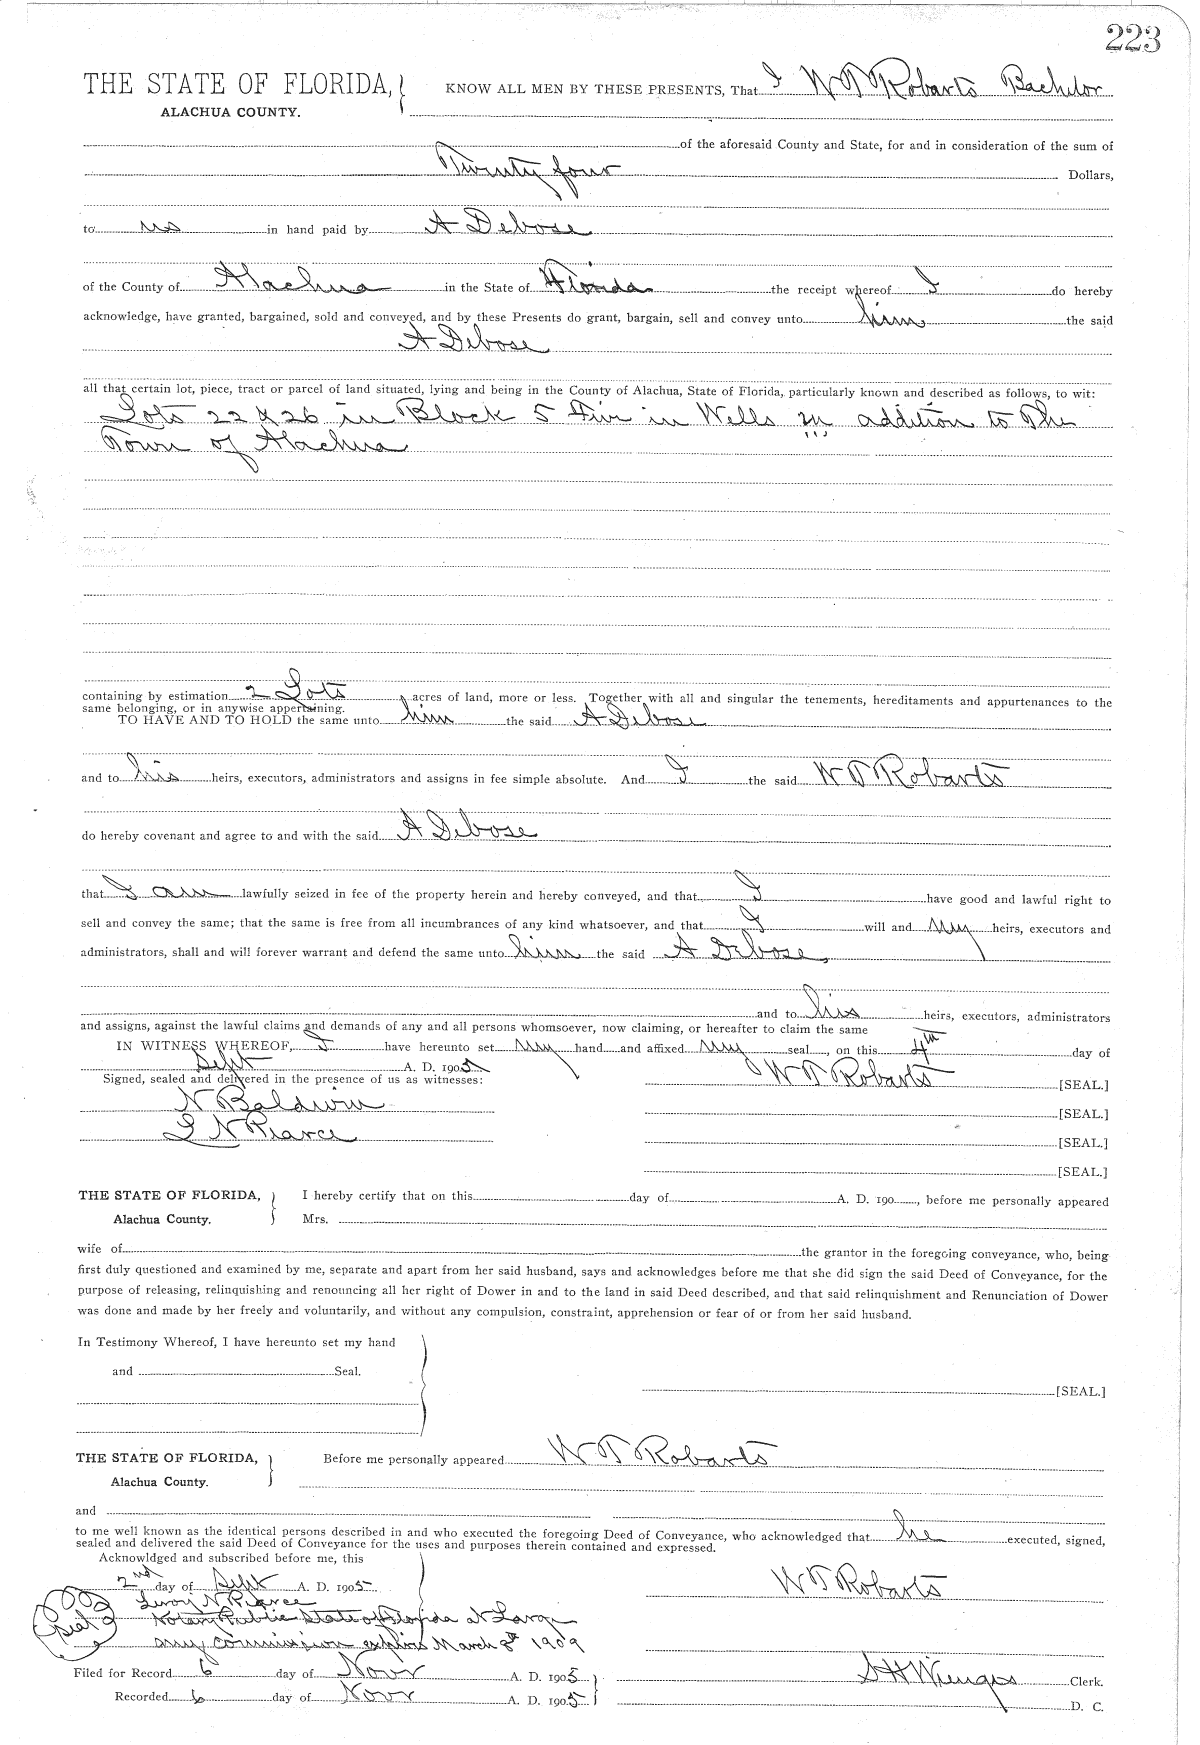 223
THE STATE OF FLORIDA, KNOW ALL MEN BY THESE PRESENTS, That I W T Robarts Bachelor
ALACHUA COUNTY.
of the aforesaid County and State, for and in consideration of the sum of
Twenty four Dollars,
to us in hand paid by A Debose
of the County of Alachua in the State of Florida the receipt whereof I do hereby
acknowledge, have granted, bargained, sold and conveyed, and by these Presents do grant, bargain, sell and convey unto him the said
A Debose
all that certain lot, piece, tract or parcel of land situated, lying and being in the County of Alachua, State of Florida, particularly known and described as follows, to wit:
Lots 22 & 26 in Block 5 Five in Wells in addition to The
Town of Alachua
containing by estimation 2 Lots acres of land, more or less. Together with all and singular the tenements, hereditaments and appurtenances to the
same belonging, or in anywise appertaining.
TO HAVE AND TO HOLD the same unto him the said A Debose
and to his heirs, executors, administrators and assigns in fee simple absolute. And I the said W T Robarts
do hereby covenant and agree to and with the said A Debose
that I am lawfully seized in fee of the property herein and hereby conveyed, and that I have good and lawful right to
sell and convey the same; that the same is free from all incumbrances of any kind whatsoever, and that I will and my heirs, executors and
administrators, shall and will forever warrant and defend the same unto him the said A Debose,
and to his heirs, executors, administrators
and assigns, against the lawful claims and demands of any and all persons whomsoever, now claiming, or hereafter to claim the same
IN WITNESS WHEREOF, I have hereunto set my hand and affixed my seal, on this 4th day of
Sept A. D. 1905
Signed, sealed and delivered in the presence of us as witnesses: W T Robarts [SEAL.]
N Baldwin [SEAL.]
L N Pearce [SEAL.]
[SEAL.]
THE STATE OF FLORIDA, I hereby certify that on this day of A. D. 190 , before me personally appeared
Alachua County. Mrs.
wife of the grantor in the foregoing conveyance, who, being
first duly questioned and examined by me, separate and apart from her said husband, says and acknowledges before me that she did sign the said Deed of Conveyance, for the
purpose of releasing, relinquishing and renouncing all her right of Dower in and to the land in said Deed described, and that said relinquishment and Renunciation of Dower
was done and made by her freely and voluntarily, and without any compulsion, constraint, apprehension or fear of or from her said husband.
In Testimony Whereof, I have hereunto set my hand
and Seal.
[SEAL.]
THE STATE OF FLORIDA, Before me personally appeared W T Robarts
Alachua County.
and
to me well known as the identical persons described in and who executed the foregoing Deed of Conveyance, who acknowledged that he executed, signed,
sealed and delivered the said Deed of Conveyance for the uses and purposes therein contained and expressed.
Acknowldged and subscribed before me, this
2nd day of Sept A. D. 1905 W T Robarts
Leroy N Pearce
Seal Notary Public State of Florida at Large
my commission expires March 8th 1909
Filed for Record 6 day of Novr A. D. 1905 S H Wienges Clerk.
Recorded 6 day of Novr A. D. 1905 D. C.